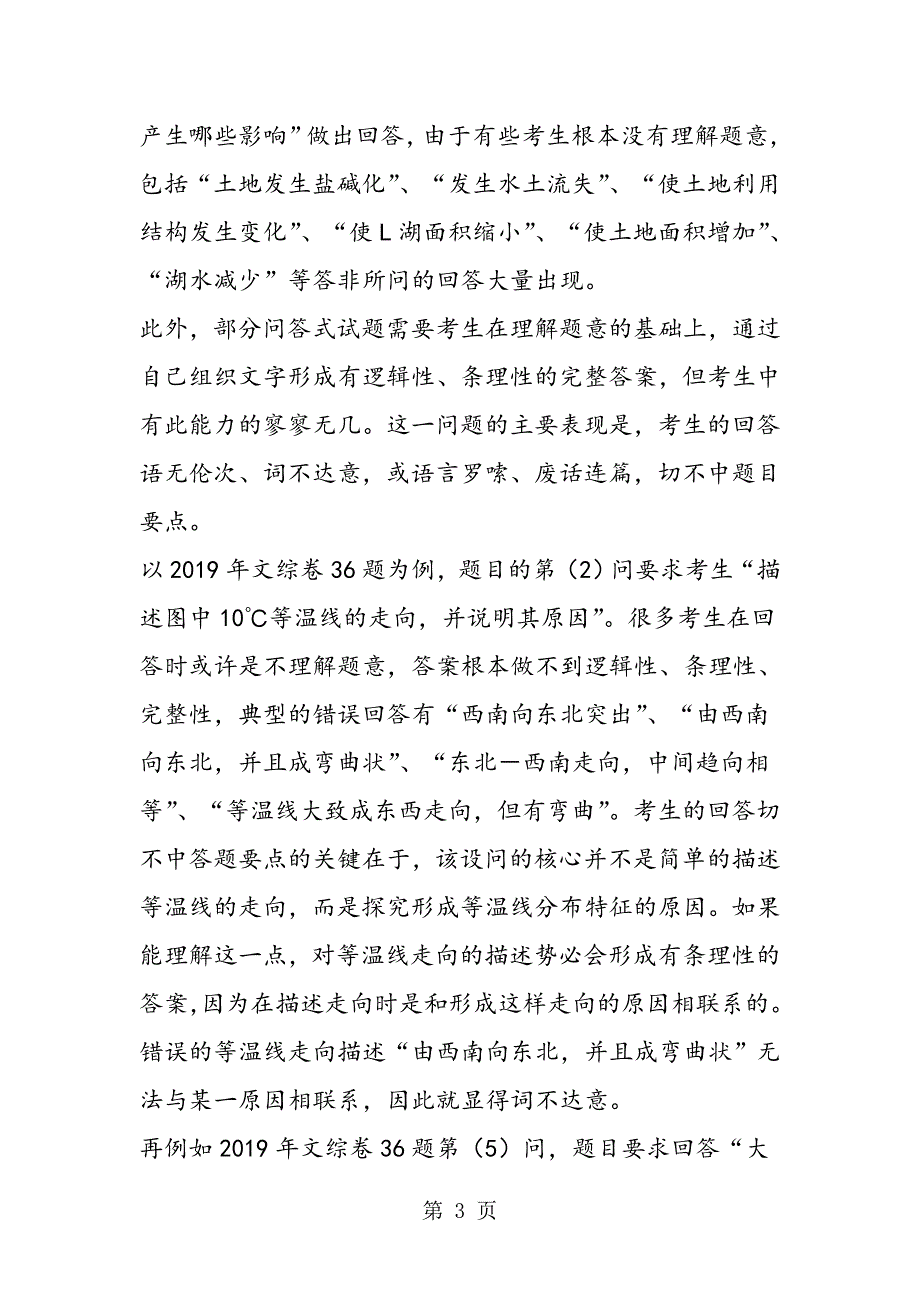 产生哪些影响”做出回答，由于有些考生根本没有理解题意，
包括“土地发生盐碱化”、“发生水土流失”、“使土地利用
结构发生变化”、“使L湖面积缩小”、“使土地面积增加”、
“湖水减少”等答非所问的回答大量出现。
此外，部分问答式试题需要考生在理解题意的基础上，通过
自己组织文字形成有逻辑性、条理性的完整答案，但考生中
有此能力的寥寥无几。这一问题的主要表现是，考生的回答
语无伦次、词不达意，或语言罗嗦、废话连篇，切不中题目
要点。
以2019年文综卷36题为例，题目的第（2）问要求考生“描
述图中10℃等温线的走向，并说明其原因”。很多考生在回
答时或许是不理解题意，答案根本做不到逻辑性、条理性、
完整性，典型的错误回答有“西南向东北突出”、“由西南
向东北，并且成弯曲状”、“东北－西南走向，中间趋向相
等”、“等温线大致成东西走向，但有弯曲”。考生的回答切
不中答题要点的关键在于，该设问的核心并不是简单的描述
等温线的走向，而是探究形成等温线分布特征的原因。如果
能理解这一点，对等温线走向的描述势必会形成有条理性的
答案，因为在描述走向时是和形成这样走向的原因相联系的。
错误的等温线走向描述“由西南向东北，并且成弯曲状”无
法与某一原因相联系，因此就显得词不达意。
再例如2019年文综卷36题第（5）问，题目要求回答“大
第 3 页